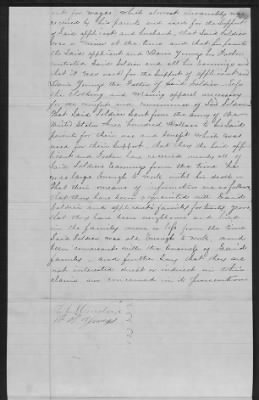 out for wages which almost invariably was
received by his parents and used for the support
of said applicant and husband, that said Soldier
was a minor at the time and that his parents
to said applicant and Young his Father
controlled said Soldier and all his earnings and
that it was used for the support of applicant and
Young the Father of said Soldier
the clothing and wearing apparel necessary
for use comfort and of said Soldier
That said Soldier sent from the army of the
United States three hundred Dollars to his said
parents for their use and benefit which was
used for their support, that they the said appli
cant and Father have received nearly all of
said Soldiers Earnings from the time he
was large Enough to work until his death
That their means of information are as follows
that they have been acquainted with said
Soldier and applicants family for twenty years
that they have been neighbours and lived
in the family more or less from the time
said Soldier was old Enough to work, and
been conversant with the of said
family, and further say that they are
not interested direct or indirect in this
claim nor concerned in its prosecution